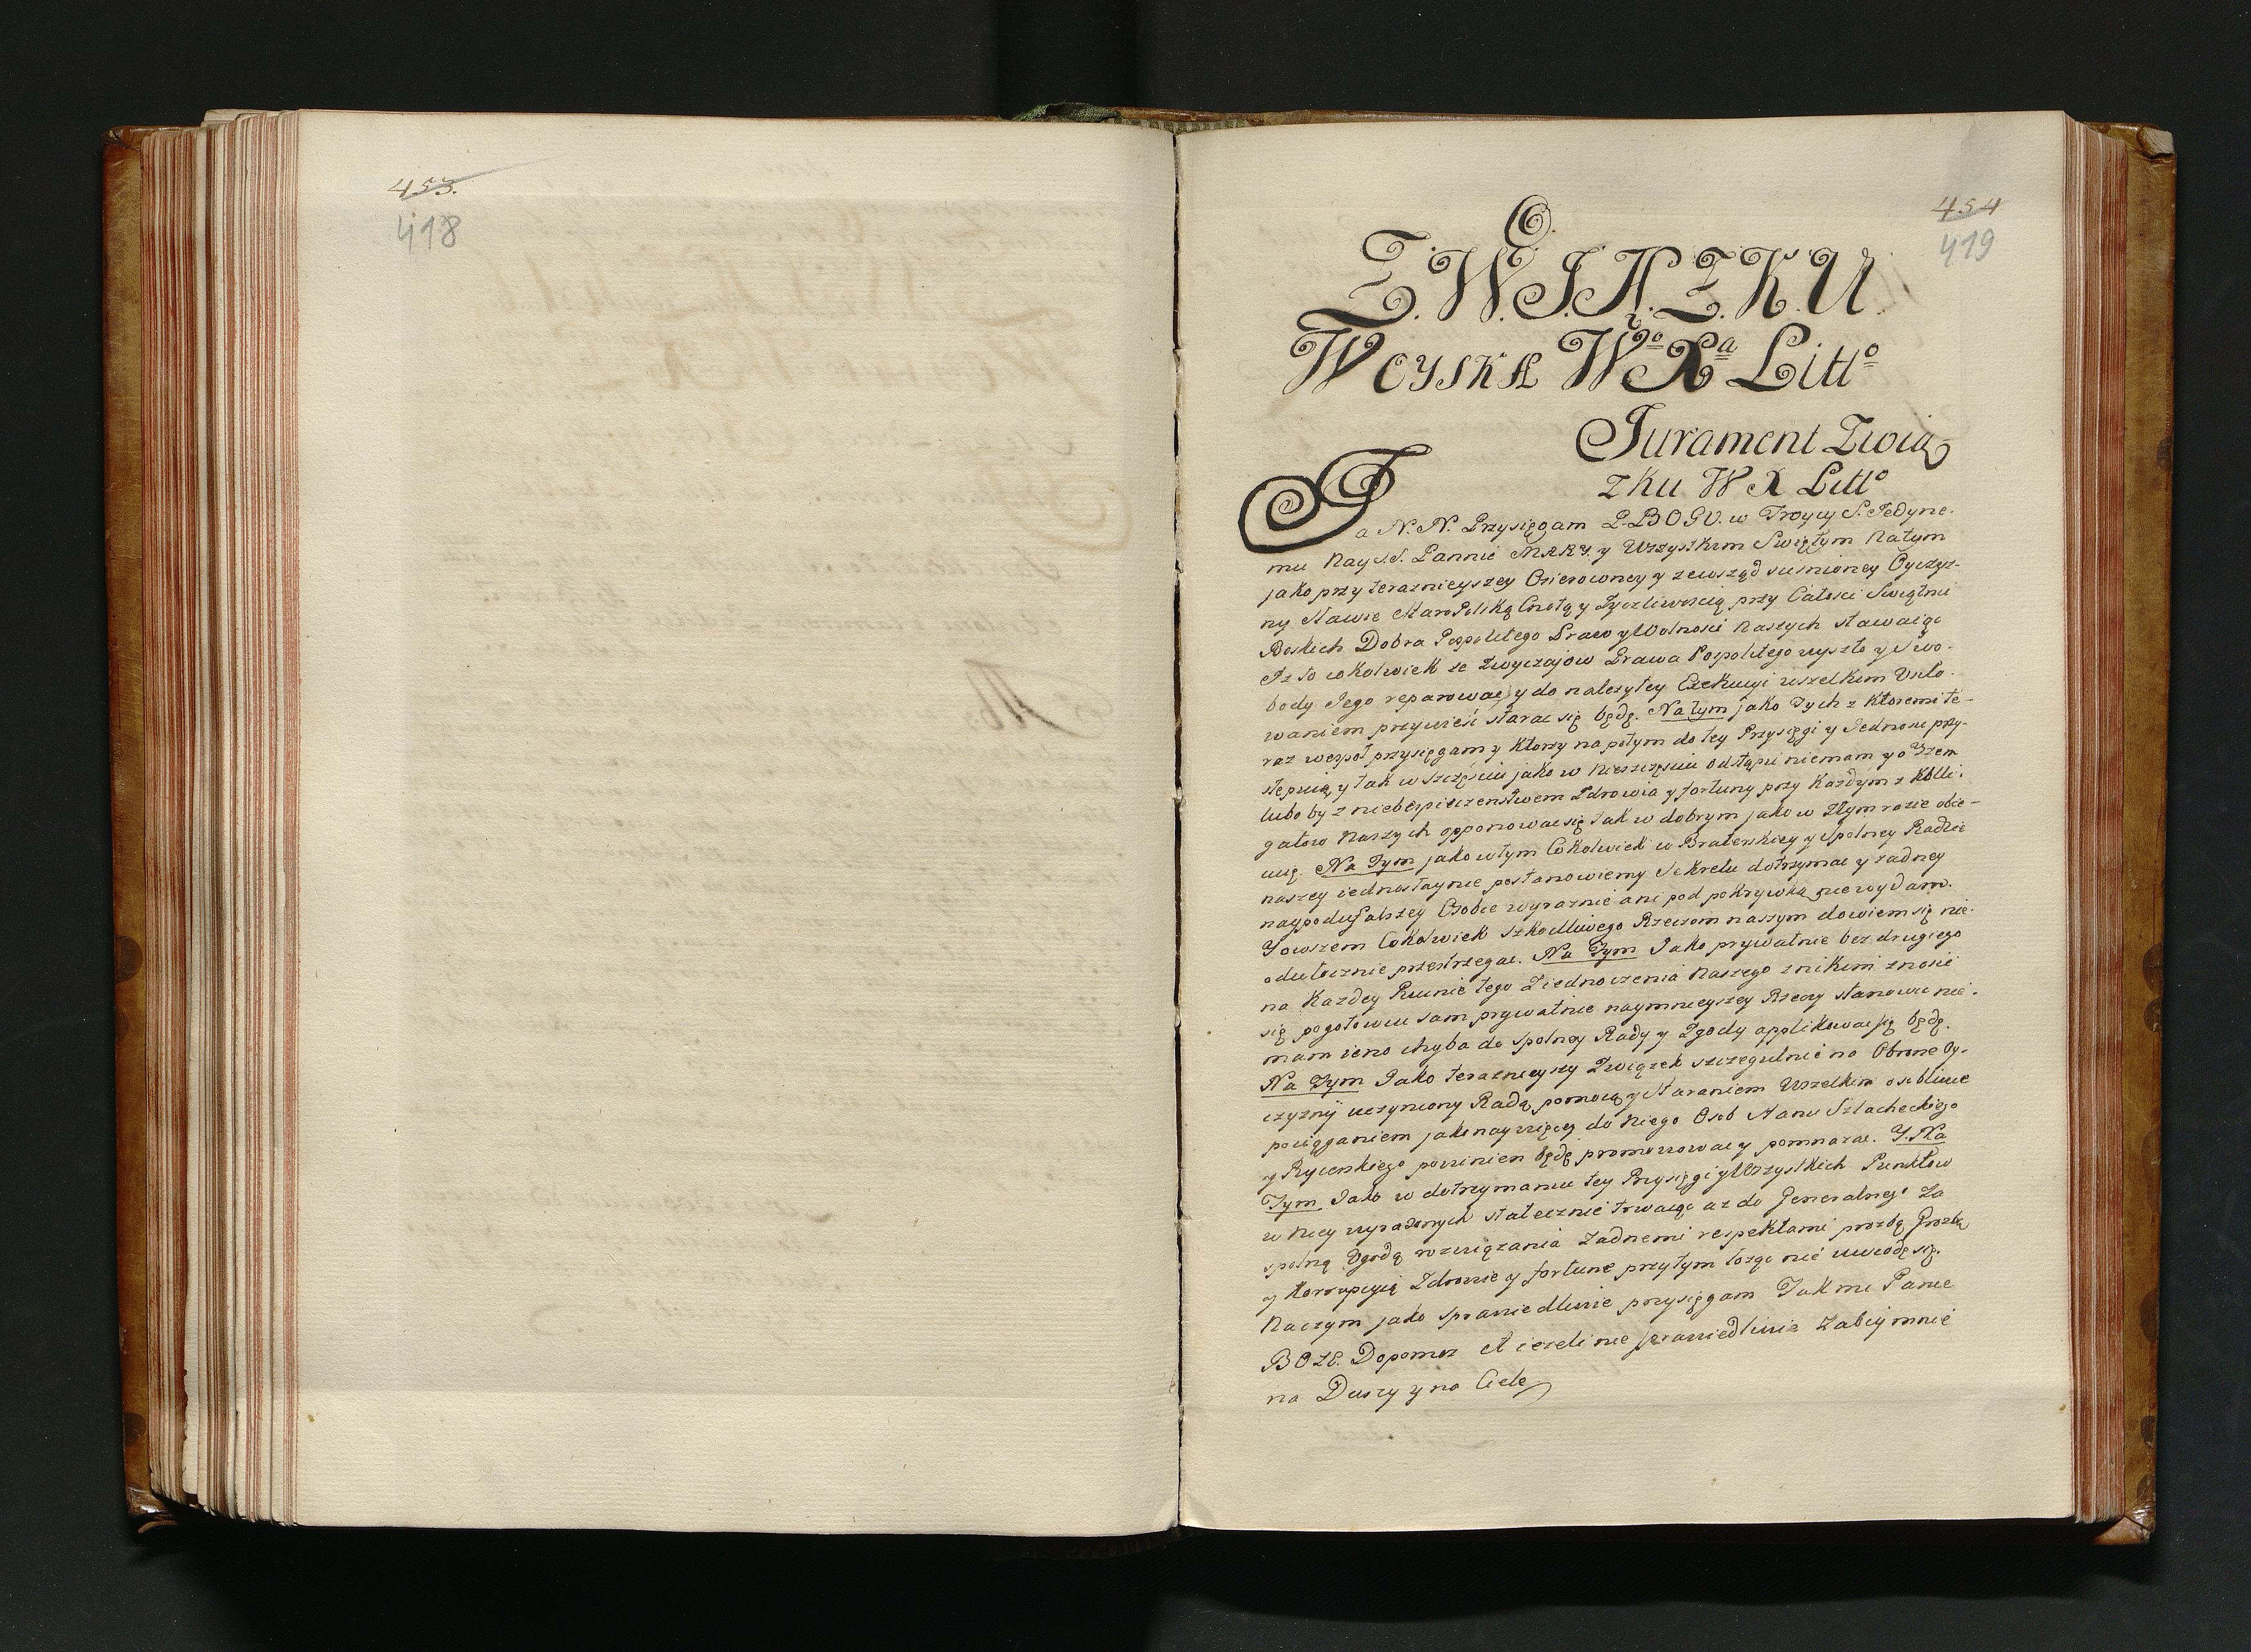 453.
418
454
419
O.
Z.W.I.Ą.Z.K.U.
WOYSKA Wgo Xa Littº
Jurament Zwią
zku W X Littº
Ja N. N. Przysięgam P. BOGU. w Troycy S. Jedyne.
mu Nays.S. Pannie MARY. y Wszystkim Swiętym Natym
jako przy teraznieyszey Osierowney y zewsząd scisnioney Oyczyz-
ny Stawie Staro Polską Cnotą y Zyczliwoscią przy Całosci Swiątnic
Boskich Dobra Pospolitego Praw y Wolnosci Naszych stawaiąc
Iz to cokolwiek ze Zwyczajow Prawa Pospolitego wyszło y Swo-
body Jego reparowac, y do nalezytey Exekucyi wszelkim Usiło-
waniem przywieść starac się będę. Natym jako Tych z ktoremi te-
raz wespoł przysięgam y ktorzy napotym do tey Przysięgi y Jednosci przy-
stępuią, y tak w szczęsciu jako w Nieszczęsciu odstąpic niemam y o Wzem
luboby z niebezpieczenstwem Zdrowia y fortuny przy Kazdym z Kolli-
gatow Naszych opponowac się tak w dobrym jako w Złym razie obie-
cuię. Na Tym jako w tym Cokolwiek w Braterskiey y Spolney Radzie
naszey iednostaynie postanowiemy Sekretu dotrzymac y zadney
naypodufalszey Osobie wyraznie ani pod pokrywką nie wydam.
Jowszem Cokolwiek szkodliwego Rzeczom naszym dowiem się nie-
odwłocznie przestrzegac. Na Tym Jako prywatnie bez drugiego
na Kazdey Ruinie tego Ziednoczenia Naszego znikim znosić
się pogotowiu sam prywatnie naymnieyszey Rzeczy stanowic nie-
mam ieno chyba do spolney Rady y Zgody applikowac się będę.
Na Tym Jako teraznieyszy Związek szczegulnie na Obrone Oy-
czyzny uczyniony Radą, pomocą y Staraniem Wszelkim osobliwie
pociąganiem jaknaywięcey do Niego Osob Stanu Szlacheckiego
y Rycerskiego powinien będę promowowac y pomnazac. Y. Na
Tym Jako w dotrzymaniu tey Przysięgi y Wszystkich Punktow
w Niey wyrazonych statecznie trwaiąc az do Generalnego Za
spolną Zgodą rozwiązania Zadnemi respektami prozbą Grozbą
y Korrupcyią Zdrowie y fortune przytym łoząc nie uwiodę się.
Naczym jako sprawiedliwie przysięgam Tak mi Panie
BOZE. Dopomoz A iezeli nie sprawiedliwie Zabiy mnie
na Duszy y na Ciele